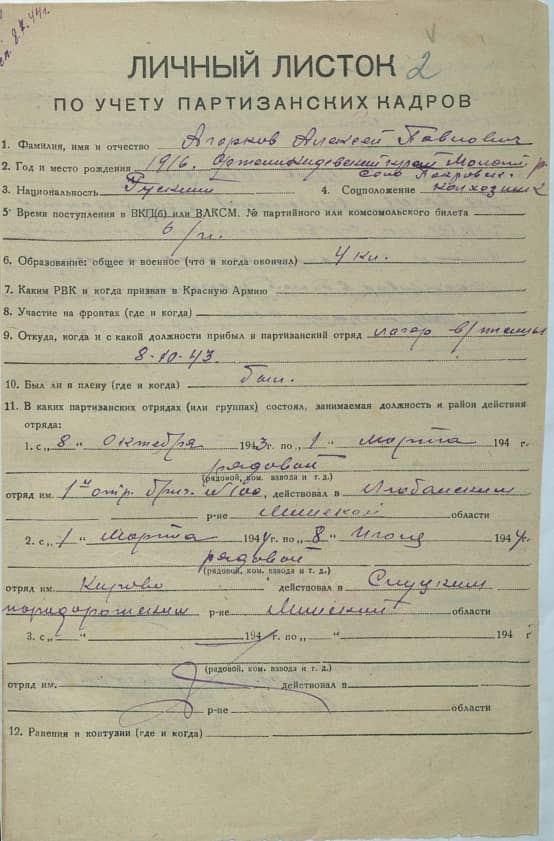 8.X.44г.
ЛИЧНЫЙ ЛИСТОК 2
ПО УЧЕТУ ПАРТИЗАНСКИХ КАДРОВ
1. Фамилия, имя и отчество Агарков Алексей Павлович
2. Год и место рождения 1916. Орджоникидзевский край
село Покровск.
3. Национальность Русский 4. Соцположение колхозник
5. Время поступления в ВКП(б) или ВЛКСМ. № партийного или комсомольского билета
б/п.
6. Образование: общее и военное (что и когда окончил) 4 кл.
7. Каким РВК и когда призван в Красную Армию
8. Участие на фронтах (где и когда)
9. Откуда, когда и с какой должности прибыл в партизанский отряд лагер в/пленных
8-10-43.
10. Был ли в плену (где и когда) был.
11. В каких партизанских отрядах (или группах) состоял, занимаемая должность и район действия
отряда:
1. с „8" октября 1943г. по „1" марта 194 г
рядовой
(рядовой, ком. взвода и т. д.)
отряд им. 1й отр. бриг. №100, действовал в Любанским
р-не Минской области
2. с „1" Марта 1944г. по „8" Июля 1944г.
рядовой
(рядовой, ком. взвода и т. д.)
отряд им. Кирово действовал в Слуцким
р-не Минский области
3. с „ " 194 г. по „ " 194 г
(рядовой, ком. взвода и т. д.)
отряд им. действовал в
р-не области
12. Ранения и контузии (где и когда)